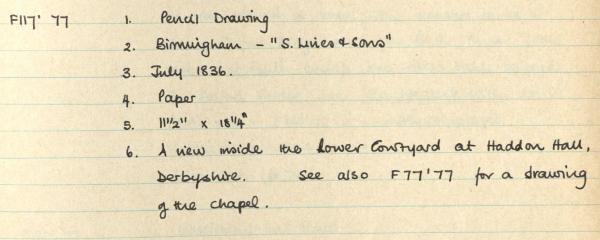 F117' 77 1. Pencil Drawing
2. Birmingham - "S. Lines & Sons"
3. July 1836.
4. Paper
5. 11 1/2" x 18 1/4"
6. A view inside the Lower Courtyard at Haddon Hall,
Derbyshire. See also F77'77 for a drawing
of the chapel.